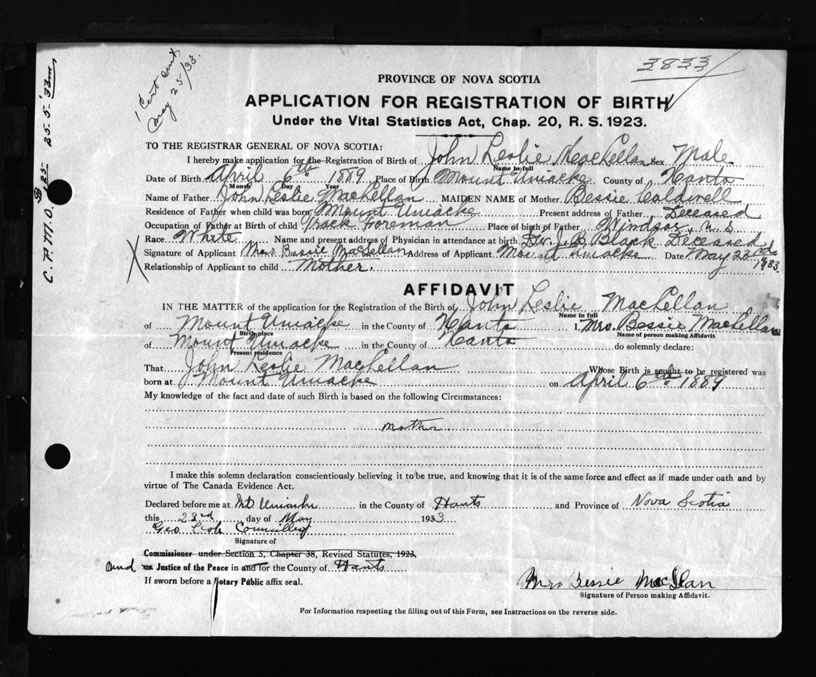 3833
1 Cert sent
May 25/33.
C.P.M.O. 125 25-5-33
PROVINCE OF NOVA SCOTIA
APPLICATION FOR REGISTRATION OF BIRTH
Under the Vital Statistics Act, Chap. 20, R. S. 1923.
TO THE REGISTRAR GENERAL OF NOVA SCOTIA:
I hereby make application for the Registration of Birth of John Leslie MacLellan Sex Male
Name in full
Date of Birth April 6th 1889 Place of Birth Mount Uniacke County of Hants
Month Day Year
Name of Father John Leslie MacLellan MAIDEN NAME of Mother Bessie Caldwell
Residence of Father when child was born Mount Uniacke Present address of Father Deceased
Occupation of Father at Birth of child Track Foreman Place of birth of Father Windsor, N.S
Race White Name and present address of Physician in attendance at birth Dr. J.B. Black Deceased
Signature of Applicant Mrs Bessie MacLellan Address of Applicant Mount Uniacke Date May 23rd 1933
Relationship of Applicant to child Mother.
AFFIDAVIT
IN THE MATTER of the application for the Registration of the Birth of John Leslie MacLellan
Name in full
of Mount Uniacke in the County of Hants I, Mrs. Bessie MacLellan
Birth place Name of person making Affidavit
of Mount Uniacke in the County of Hants do solemnly declare:
Present residence
That John Leslie MacLellan Whose Birth is sought to be registered was
born at Mount Uniacke on April 6th 1889
My knowledge of the fact and date of such Birth is based on the following Circumstances:
mother.
I make this solemn declaration conscientiously believing it to be true, and knowing that it is of the same force and effect as if made under oath and by
virtue of The Canada Evidence Act.
Declared before me at Mt Uniacke in the County of Hants and Province of Nova Scotia
this 23rd day of May 1933
Geo Councillor
Signature of
Commissioner under Section 5, Chapter 38, Revised Statutes, 1923,
and or Justice of the Peace in and for the County of Hants
If sworn before a Notary Public affix seal.
Mrs Bessie MacLlan
Signature of Person making Affidavit.
For Information respecting the filling out of this Form, see Instructions on the reverse side.